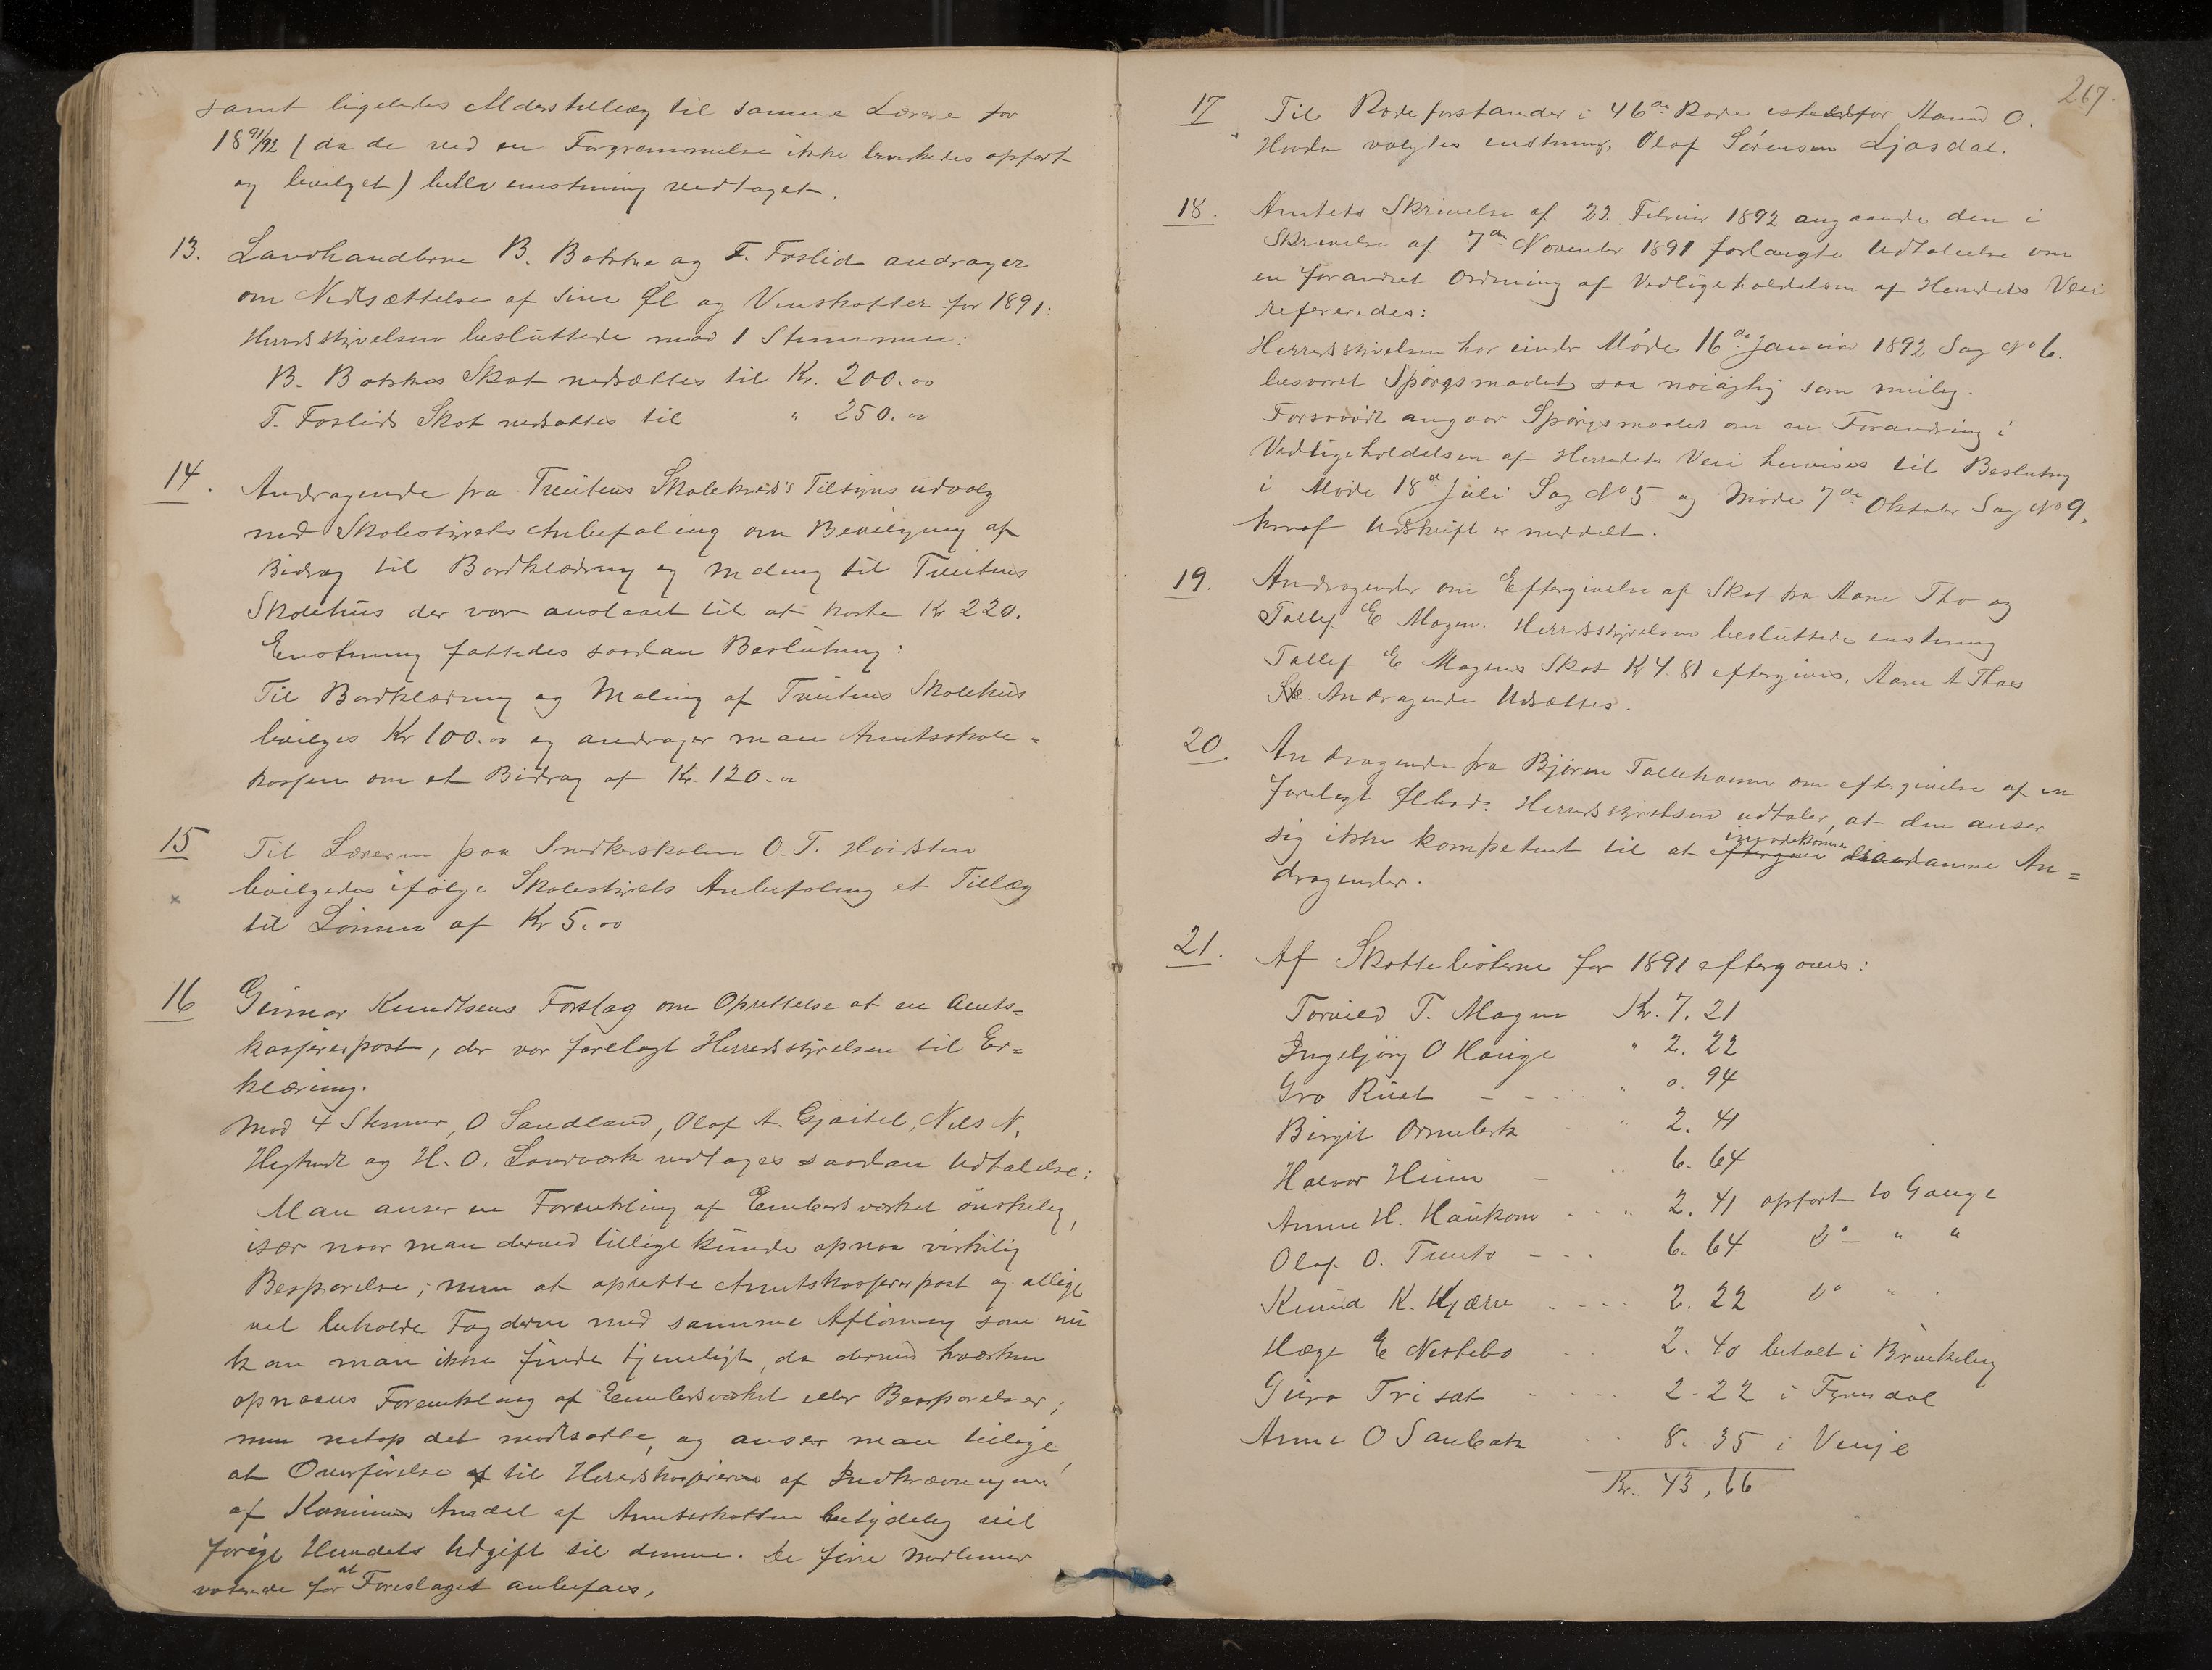 samt ligeledes Alderstillæg til samme Lærere for
18 91/92 (da de ved en Forglemmelse ikke bemerkedes opført
og bevilget) blev enstemmig vedtaget.
13. Landhandlerne B. Bakka og T. Foslid andrager
om Nedsættelse af sine Øl og Vinskatter for 1891:
Herredsstyrelsen besluttede mod 1 Stemme:
B. Bakkas Skat nedsættes til Kr. 200.00
T. Foslids Skat nedsættes til " 250.00
14. Andragende fra Treitens Skolekreds's Tilsynsudvalg
med Skolestyrets Anbefaling om Bevilgning af
Bidrag til Bordklædning og Maling til Treitens
Skolehus der var anslaaet til at koste Kr 220.
Enstemmig fattedes saadan Beslutning:
Til Bordklædning og Maling af Treitens Skolehus
bevilges Kr 100.00 og andrager man Amtsskole=
kassen om et Bidrag af Kr. 120.00
15 Til Læreren paa Snedkerskolen O. T. Hvidsten
bevilgedes ifølge Skolestyrets Anbefaling et Tillæg
til Lønnen af Kr 5.00
16 Gunnar Knudsens Forslag om Oprettelse af en Amts=
kassererpost, der var forelagt Herredsstyrelsen til Er=
klæring.
Mod 4 Stemmer, O Sandland, Olaf A. Gjøitil, Nils N.
og H. O. Landværk vedtages saadan Udtalelse:
Man anser en Forenkling af Embedsværket ønskelig,
især naar man derved tillige kunde opnaa virkelig
Besparelse; men at oprette Amtskassererpost og allige
vel beholde Fogderne med samme Aflønning som nu
kan man ikke finde tjenligt, da derved hværken
opnaaes Forenkling af Embedsværket eller Besparelser;
men netop det modsatte, og anser man tillige,
at Overførelse af til Herredskassererne af Indkrævningen
af Kommunens Andel af Amtsskatten betydelig vil
forøge Herredets Udgift til denne. De fire Medlemmer
voterede for at Foreslaget anbefales.
267.
17 Til Rodeforstander i 46de Rode istedetfor Aamund O.
Hovden valgtes enstemmig. Olaf Sørensen Ljosdal.
18. Amtets Skrivelse af 22 Februar 1892 angaaende den i
Skrivelse af 7de November 1891 forlangte Udtalelse om
en forandret Ordning af Vedligeholdelsen af Herredets Veie
refereredes:
Herredsstyrelsen har under Møde 16de Januar 1892 Sag No 6.
besvaret Spørgsmaalet saa nøiagtig som mulig.
Forsaavidt angaar Spørgsmaalet om en Forandring i
Vedligeholdelsen af Herredets Veie henvises til Beslutning
i Møde 18de Juli Sag No 5. og Møde 7de Oktober Sag No 9,
hvoraf Udskrift er meddelt.
19. Andragender om Eftergivelse af Skat fra Aane Tho og
Tallef E Mogen. Herredsstyrelsen besluttede enstemmig
Tallef E Mogens Skat Kr 4.81 eftergives. Aane A Thaes
Sk Andragende Udsættes.
20. Andragende fra Bjørn Tallehaum om eftergivelse af en
forelagt Ølbod. Herredsstyrelsen udtaler, at den anser
sig ikke kompetent til at eftergive imødekomme saadanne An=
dragender.
21. Af Skattelisterne for 1891 eftergaves:
Torvild T. Mogen Kr. 7. 21
Ingebjørg O Hauge " 2. 22
Gro Rust - - " 0. 94
Birgit Ormebrek " 2. 41
Halvor Heim - " 6. 64
Anne H. Haukom - - " 2. 41 opført to Gange
Olaf O. Treito - - - 6. 64 Do - " "
Knud K. Kjærn - - - - 2. 22 Do " "
Hæge E Nestebø - - 2. 40 betalt i Brunkeberg
Guro Trisæt - - - - 2. 22 i Fyresdal
Anne O Saubæk - - 8. 35 i Vinje
Kr. 43,66